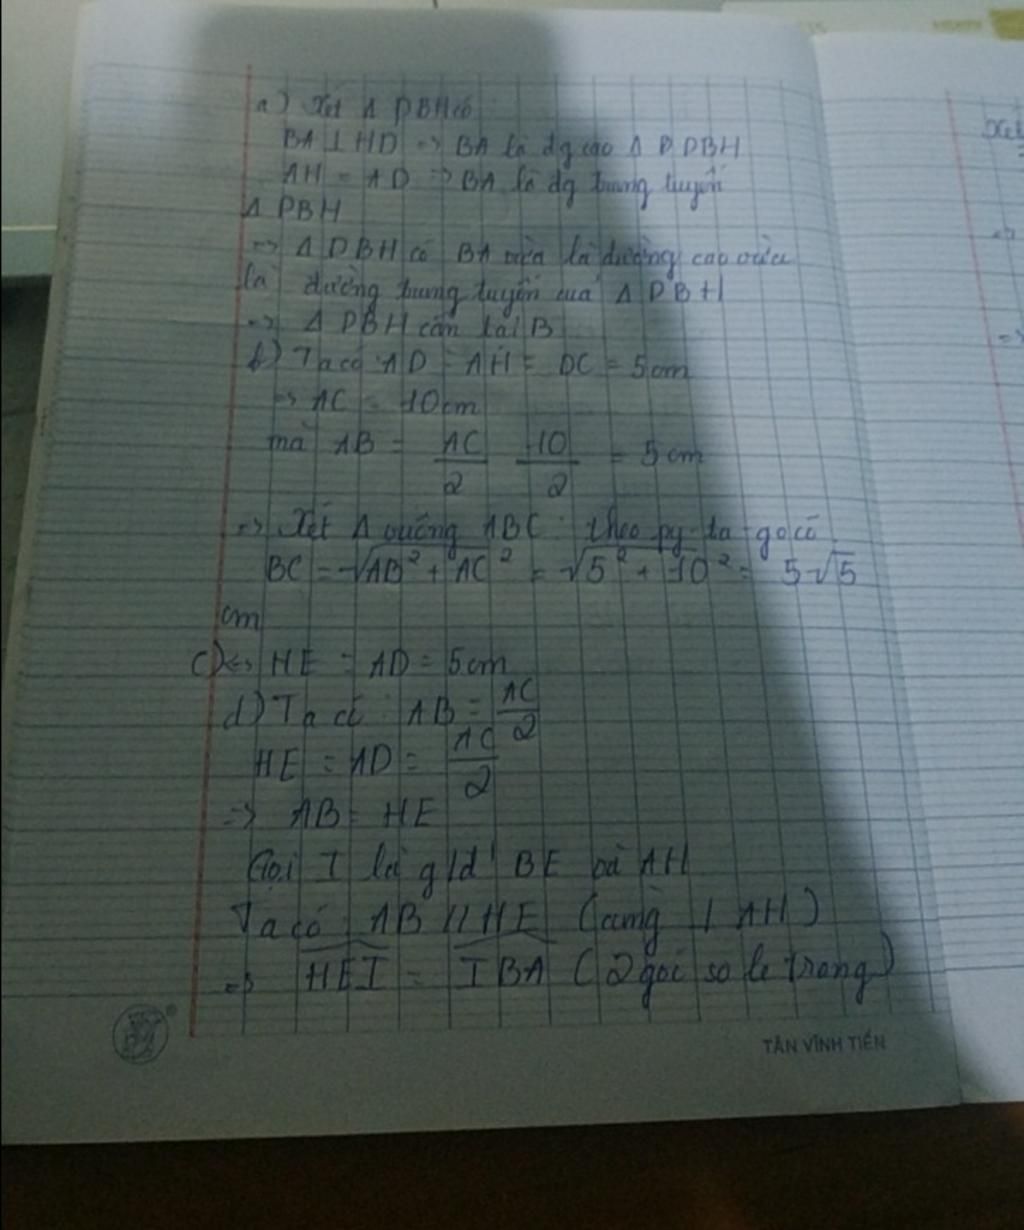 a) Xét Δ DBH có
BA ⊥ HD => BA là đg cao Δ D DBH
AH = AD => BA là đg trung tuyến
Δ DBH
=> Δ DBH có BA vừa là đường cao vừa
là đường trung tuyến của Δ DBH
=> Δ DBH cân tại B
b) Ta có AD = AH = DC = 5cm
=> AC = 10cm
mà AB = AC/2 10/2 = 5cm
=> Xét Δ vuông ABC: theo py-ta-go có
BC = √AB² + AC² = √5² + 10² = 5√5
cm
c) <=> HE = AD = 5cm
d) Ta có: AB = AC/2
HE = AD = AC/2
=> AB = HE
Gọi I là g/đ' BE và AH
Ta có AB // HE (cùng ⊥ AH)
=> HEI = IBA (2 góc so le trong)
TÂN VĨNH TIẾN
Xét
=>
=>